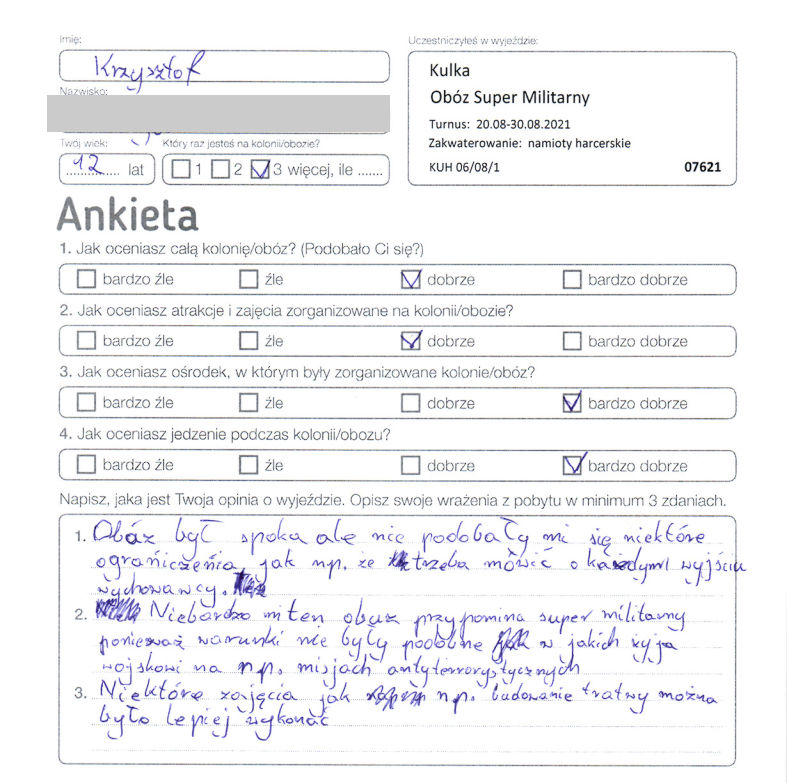 Imię:
Krzysztof
Uczestniczyłeś w wyjeździe:
Kulka
Obóz Super Militarny
Turnus: 20.08-30.08.2021
Zakwaterowanie: namioty harcerskie
KUH 06/08/1 07621
Nazwisko:
Twój wiek: Który raz jesteś na kolonii/obozie?
12 lat 1 2 3 więcej, ile .......
Ankieta
1. Jak oceniasz całą kolonię/obóz? (Podobało Ci się?)
bardzo źle źle dobrze bardzo dobrze
2. Jak oceniasz atrakcje i zajęcia zorganizowane na kolonii/obozie?
bardzo źle źle dobrze bardzo dobrze
3. Jak oceniasz ośrodek, w którym były zorganizowane kolonie/obóz?
bardzo źle źle dobrze bardzo dobrze
4. Jak oceniasz jedzenie podczas kolonii/obozu?
bardzo źle źle dobrze bardzo dobrze
Napisz, jaka jest Twoja opinia o wyjeździe. Opisz swoje wrażenia z pobytu w minimum 3 zdaniach.
1. Obóz był spoka ale nie podobały mi się niektóre
ograniczenia, jak np. że trzeba mówić o każdym wyjściu
wychowawcy.
2. Niebardzo mi ten obuz przypomina super militarny
ponieważ warunki nie były podobne w jakich żyja
wojskowi na np. misjach antyterrorystycznych
3. Niektóre zajęcia jak np. budowanie tratwy można
było lepiej wykonać